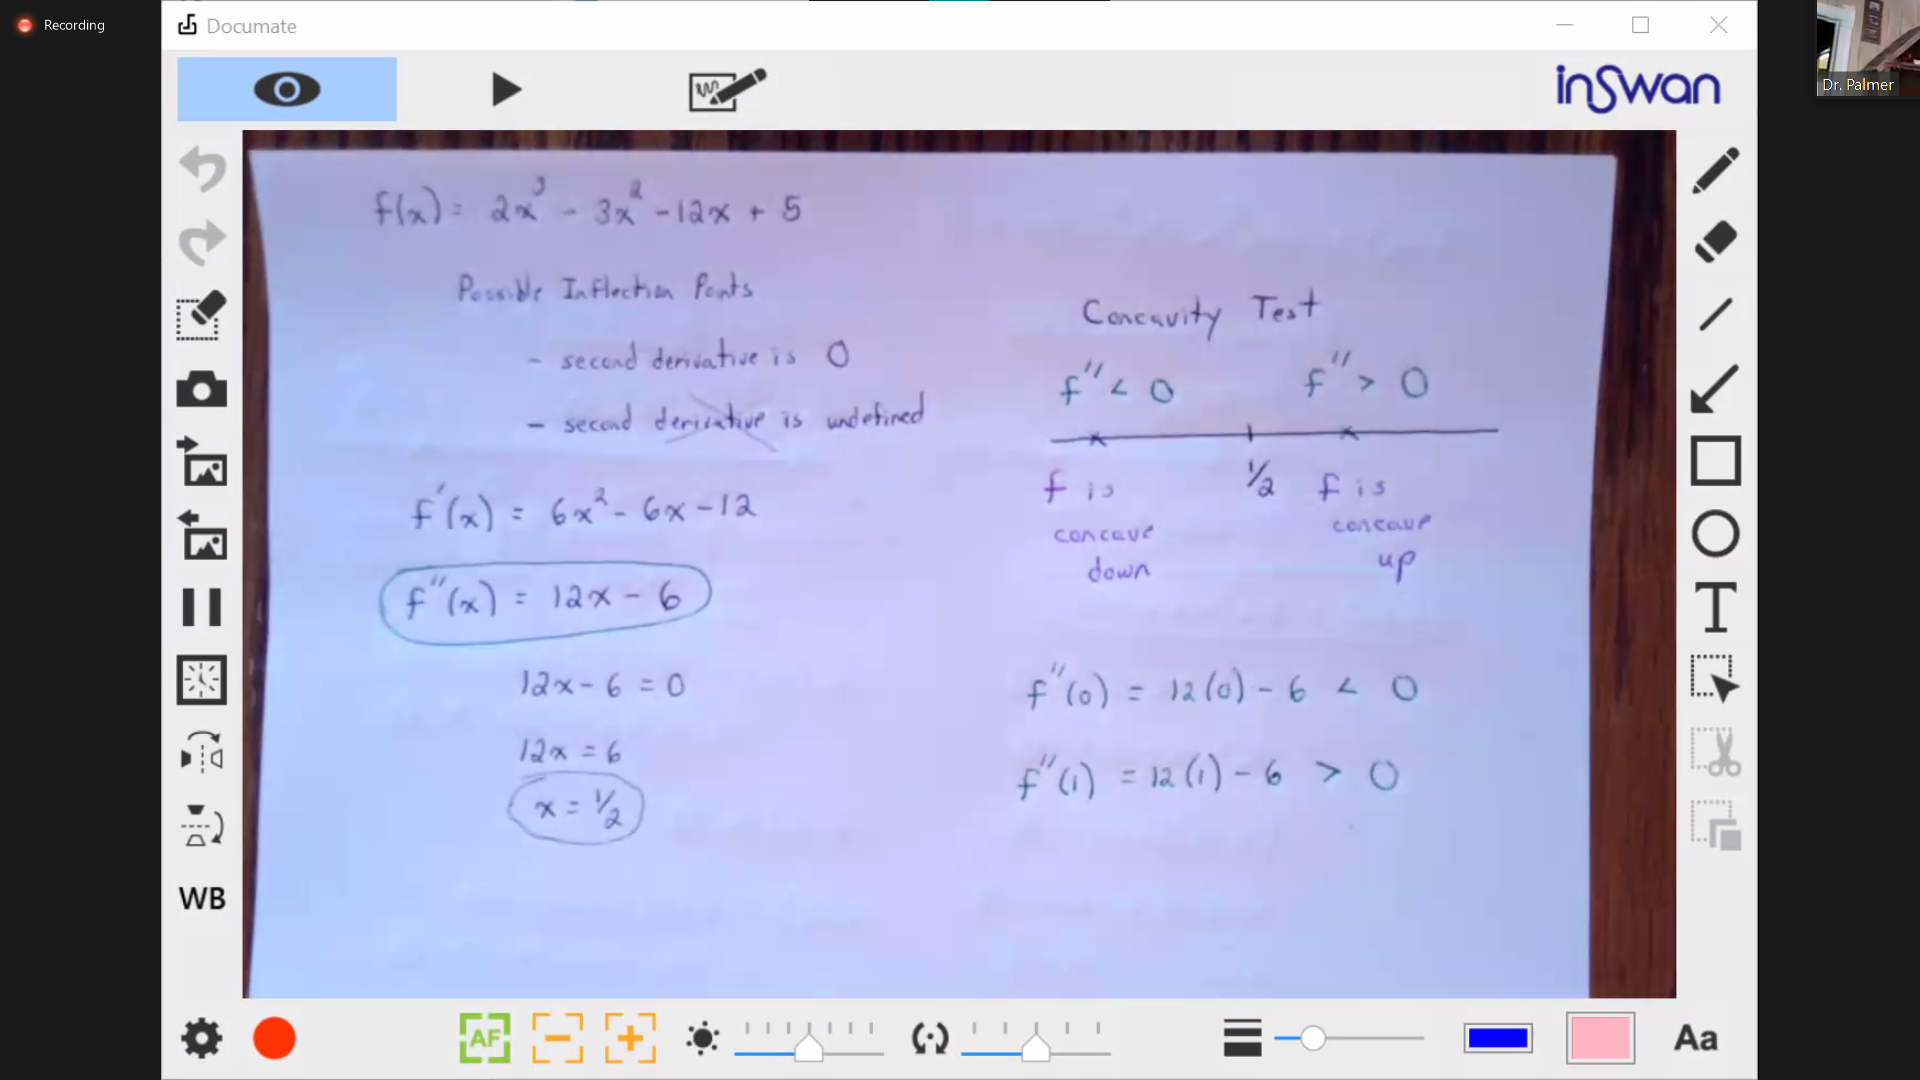 Recording
Documate
inSwan
Dr. Palmer
f(x) = 2x³ - 3x² - 12x + 5
Possible Inflection Ponts
- second derivative is 0
- second derivative is undefined
f'(x) = 6x² - 6x - 12
f''(x) = 12x - 6
12x - 6 = 0
12x = 6
x = 1/2
Concavity Test
f'' < 0 f'' > 0
1/2
f is concave down
f is concave up
f''(0) = 12(0) - 6 < 0
f''(1) = 12(1) - 6 > 0
T
WB
AF
Aa